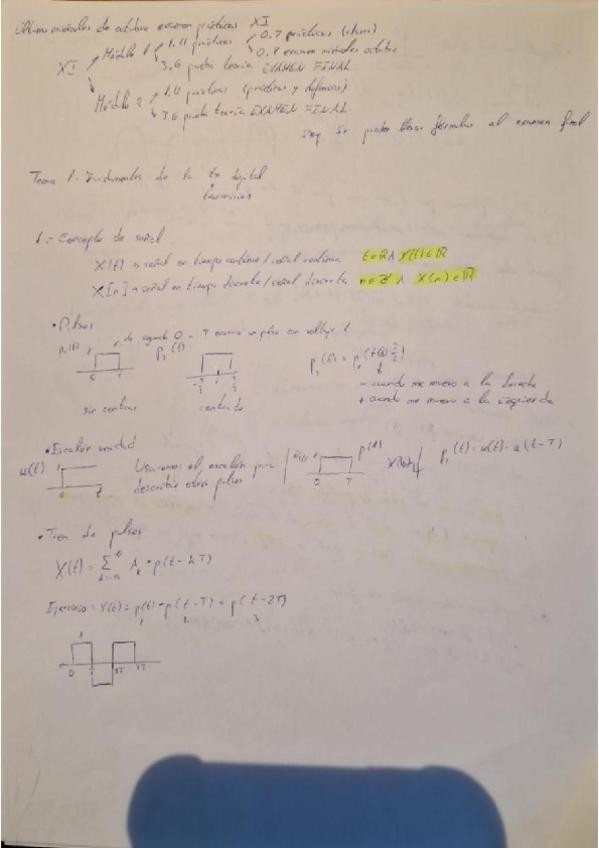 Último miércoles de octubre examen prácticas XI
XI Módulo 1 1.4 prácticas 0.7 prácticas (clase)
0.7 examen miércoles octubre
3.6 prueba teoría EXAMEN FINAL
Módulo 2 1.4 prácticas (prácticas y defensas)
3.6 prueba teoría EXAMEN FINAL
Se pueden llevar fórmulas al examen final
Tema 1.- Fundamentos de la tx digital
transmisión
1.- Concepto de señal
X(t) → señal en tiempo continuo / señal continua t∈ℝ ∧ X(t)∈ℝ
X[n] → señal en tiempo discreto / señal discreta n∈ℤ ∧ X(n)∈ℝ
• Pulsos
de segundo 0 - T ocurre un pulso con voltaje 1
p(t) p₁(t) p₁(t) =
0 T -T/2 T/2
- cuando me muevo a la derecha
sin centrar centrado + cuando me muevo a la izquierda
• Escalón unidad
u(t) Usaremos el escalón para p(t) p₁(t) = u(t) - u(t-T)
describir otros pulsos 0 T
• Tren de pulsos
X(t) = ∑ Aₖ · p(t-kT)
Ejercicio: X(t) = p(t) - p(t-T) + p(t-2T)
1 2 3
0 T 2T 3T